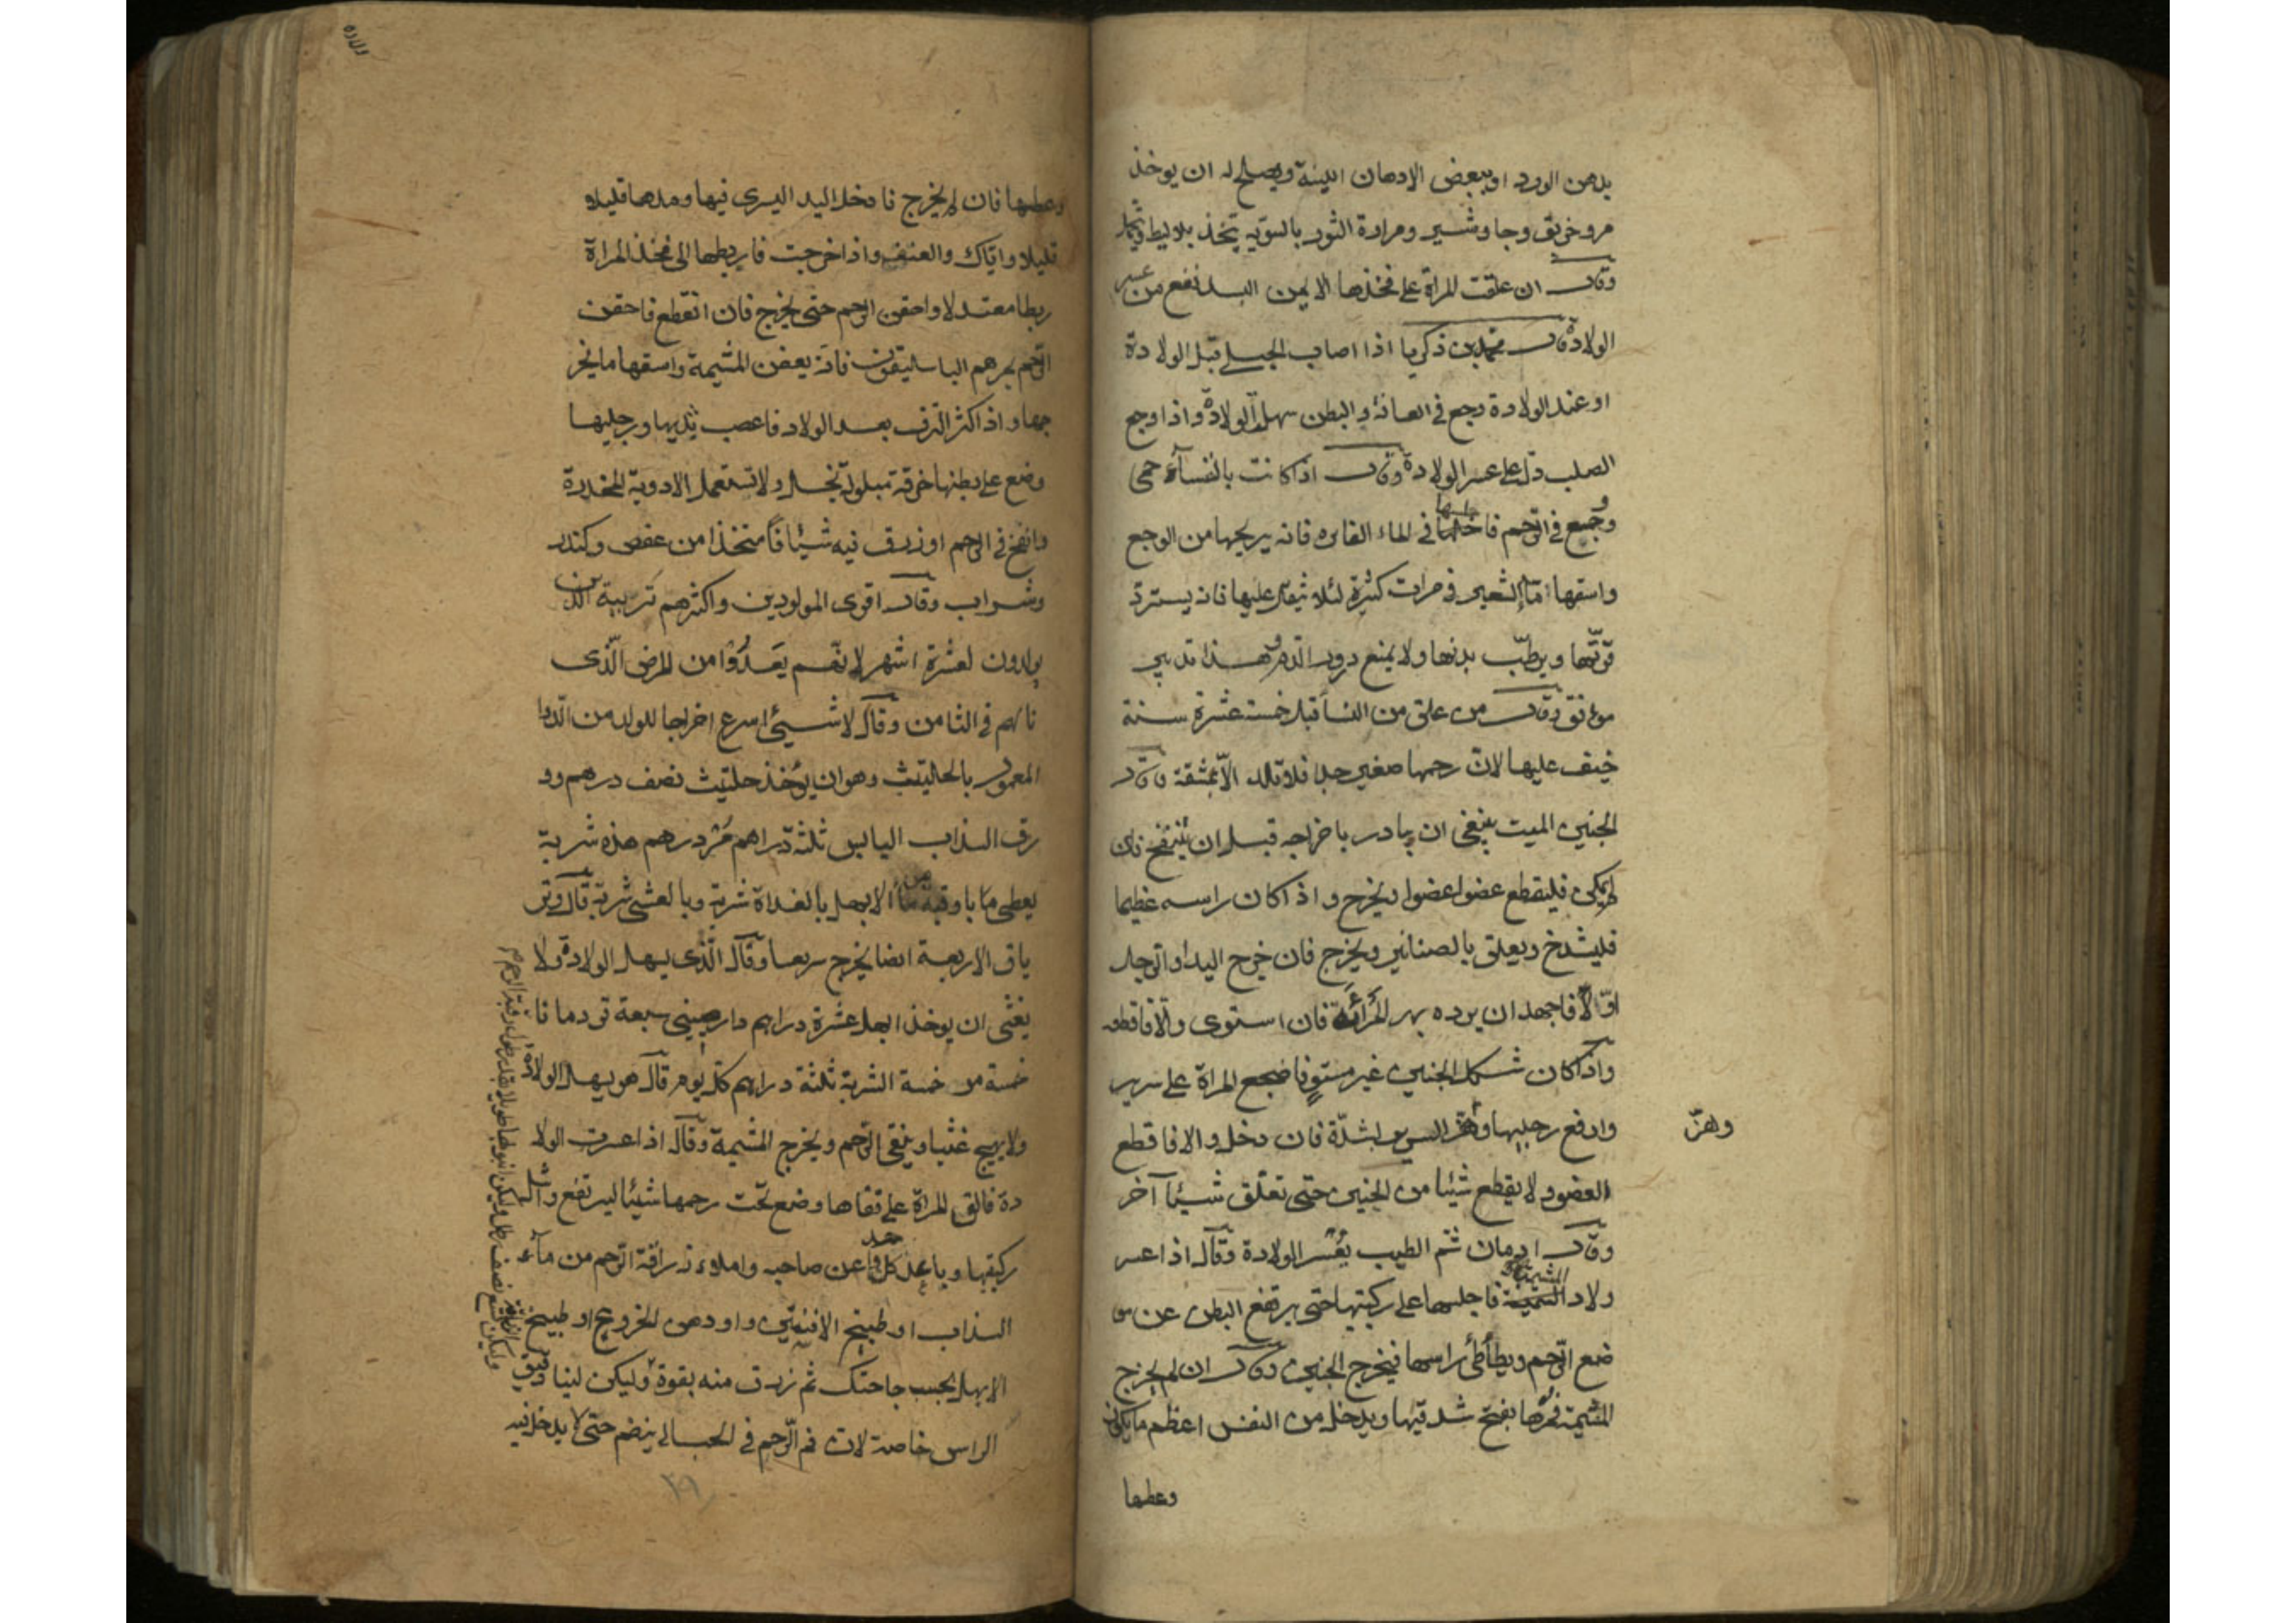 بدهن الورد او ببعض الادهان اللينة ويصلح له ان يوخذ
مر وخربق وجاوشير ومرارة الثور بالسوية يتخذ بلاليط
وقال ان علقت المراة على فخذها الايمن البسد نفع من عسر
الولادة قال محمد بن زكريا اذا اصاب الحبلى قبل الولادة
او عند الولادة وجع في العانة والبطن سهل الولادة واذا وجع
الصلب دل على عسر الولادة وقال اذا كانت بالنفسآء حمى
ووجع في الرحم فاجلسها في الماء الفاتر فانه يريحها من الوجع
واسقها مآالشعير في مرات كثيرة لئلا يثقل عليها فانه يسترد
قوتها ويرطب بدنها ولا يمنع درور الدم وهذا تدبير
موافق وقال من علق من النسآ قبل خمسة عشرة سنة
خيف عليها لان رحمها صغير جدا فلا تلد الا بمشقة وقال
الجنين الميت ينبغى ان يبادر باخراجه قبل ان ينتفخ فان
لم يمكن فليقطع عضوا عضوا ويخرج واذا كان راسه عظيما
فليشدخ ويعلق بالصنانير ويخرج فان خرج اليد او الرجل
اولا فاجهد ان يرده فان استوى والا فاقطعه
واذا كان شكل الجنين غير مستوٍ فاضجع المراة على سرير
وارفع رجليها وهز السرير بشدة فان دخل والا فاقطع
واهزّ
العضو ولا يقطع شيئا من الجنين حتى تعلق شيئا آخر
وقال ادمان شم الطيب يعسر الولادة وقال اذا عسر
ولاد المشيمة فاجلسها على ركبتيها حتى يرتفع البطن عن مو
ضع الرحم ويطأطئ راسها فيخرج الجنين وقال ان لم يخرج
المشيمة فمرها بفتح شدقيها ويدخل من النفس اعظم ما يكون
وعطها
وعطسها فان لم يخرج فادخل اليد اليسرى فيها ومدها قليلا
قليلا واياك والعنف واذا خرجت فاربطها الى فخذ المراة
ربطا معتدلا واحقن الرحم حتى يخرج فان انقطع فاحقن
الرحم بمرهم الباسليقون فانه يعفن المشيمة واسقها ما يخر
جها واذا كثر النزف بعد الولاد فاعصب يديها ورجليها
وضع على بطنها خرقة مبلولة بخل ولا تستعمل الادوية المخدرة
وانفخ في الرحم او زرق فيه شيئا فا متخذا من عفص وكندر
وشراب وقال اقوى المولودين واكثرهم تربية الذين
يولدون لعشرة اشهر لانهم يعدوا من المرض الذى
نالهم في الثامن وقال لا شيئ اسرع اخراجا للولد من الدوا
المعمول بالحلتيث وهو ان يؤخذ حلتيث نصف درهم وو
رق السذاب اليابس ثلثة دراهم مر درهم هذه شربة
يعطى منها باوقية من مآ الابهل بالغداة شربة وبالعشى شربة قال وتر
ياق الاربعة ايضا يخرج سريعا وقال الذى يسهل الولادة ولا
يغثى ان يوخذ ابهل عشرة دراهم دارصينى سبعة قردمانا
خمسة مر خمسة الشربة ثلثة دراهم كل يوم قال هو يسهل الولادة
ولا يهيج غثيا وينقى الرحم ويخرج المشيمة وقال اذا عسرت الولا
دة فالق المراة على قفاها وضع تحت رحمها شيئا ليرتفع واشل
ركبتيها وباعد كل واحد عن صاحبه واملاء زراقة الرحم من مآء
السذاب او طبيخ او دهن الخروع او طبيخ
الابهل بحسب حاجتك ثم زرق منه بقوة وليكن لينا دقيق
الراس خاصة لان فم الرحم في الحبالى ينضم حتى لا يدخل فيه
٤٩